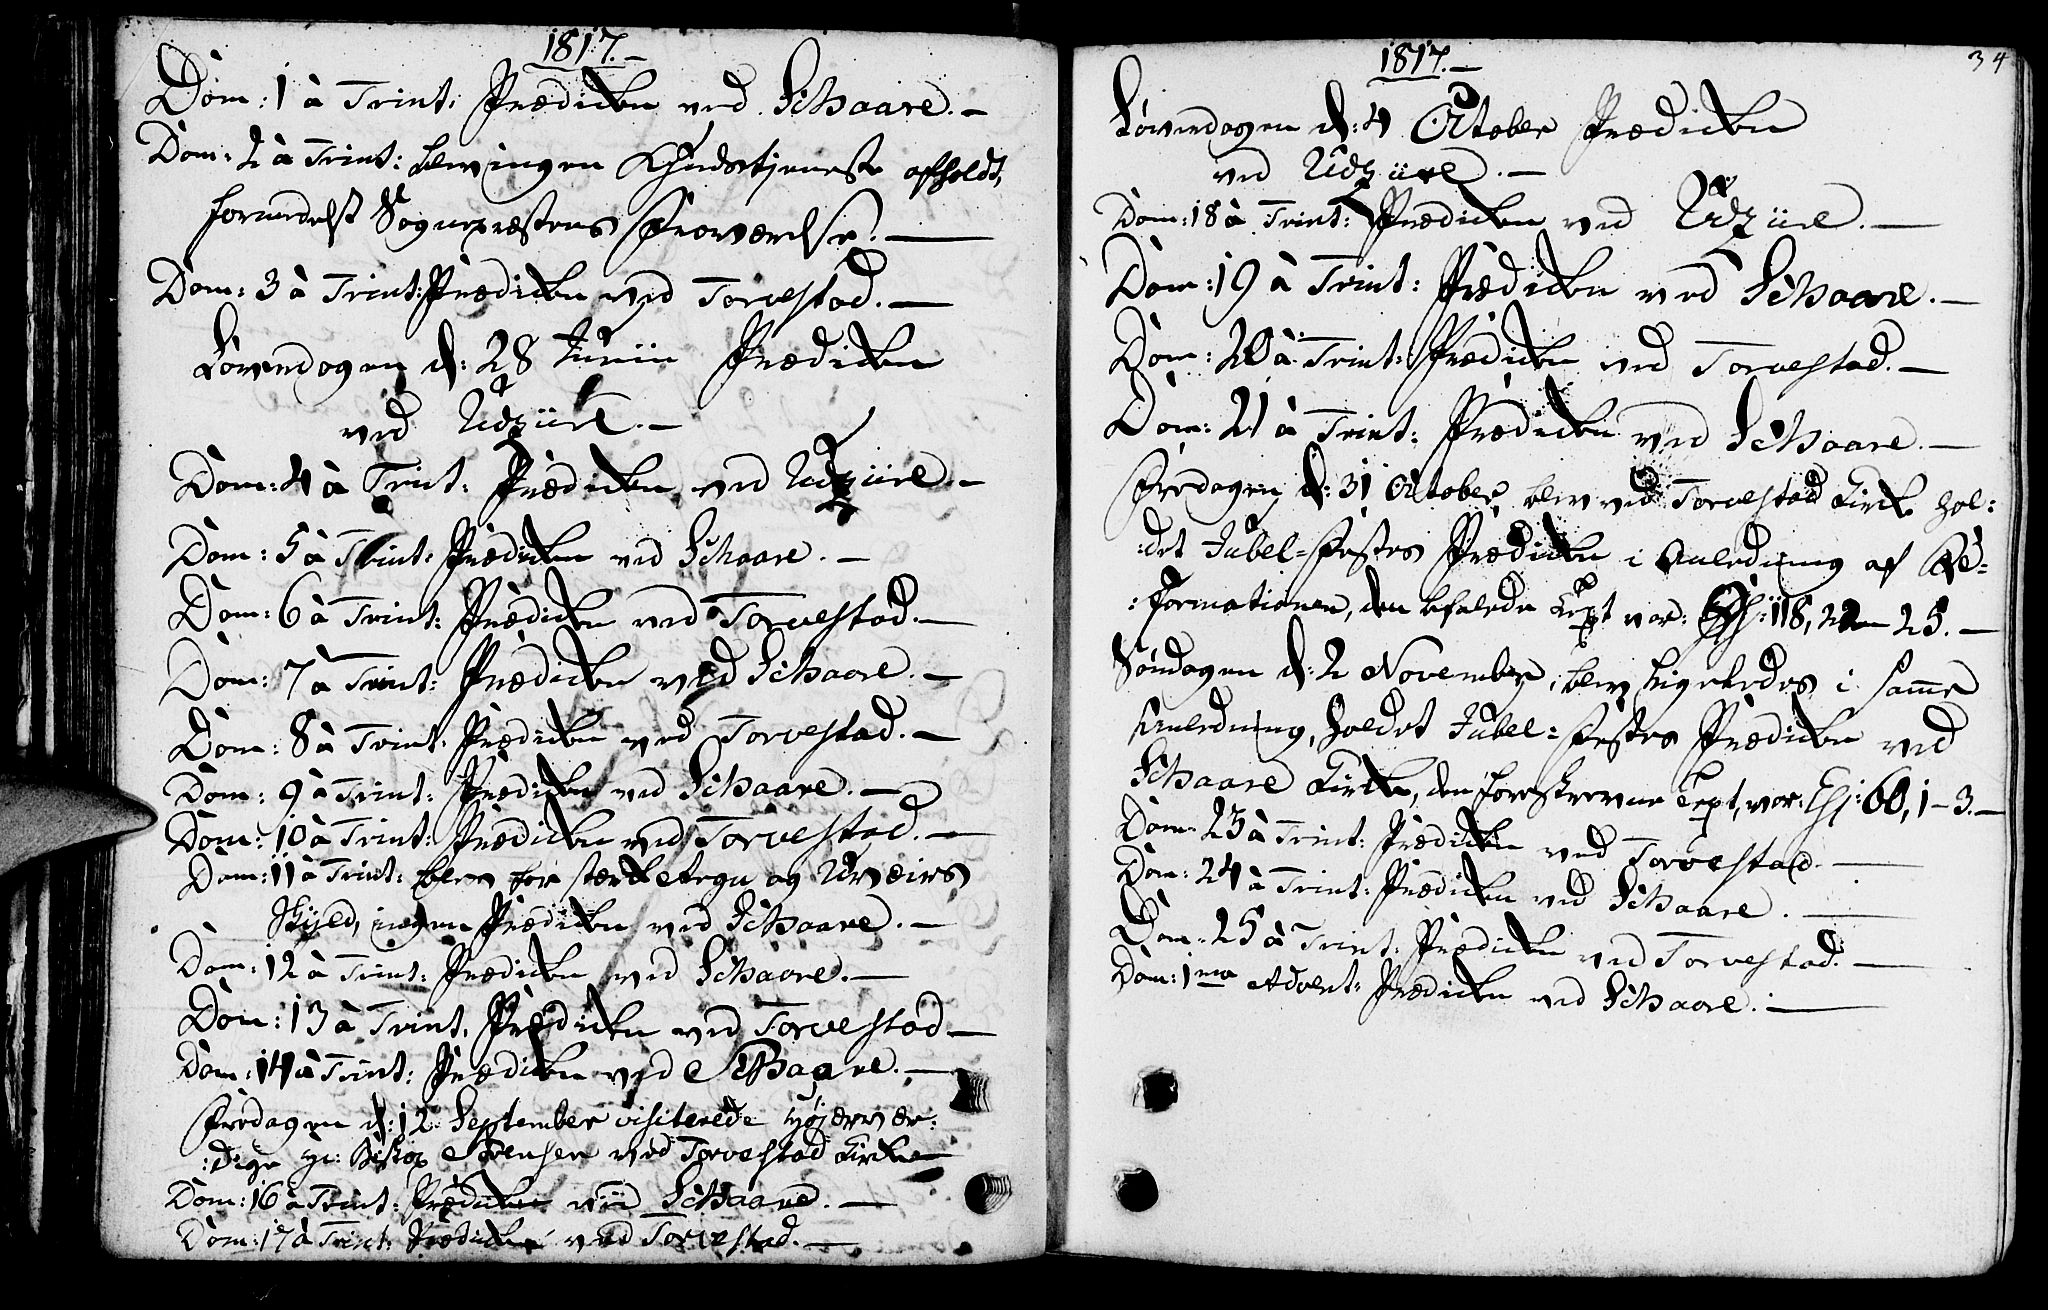 1817.-
Dom: 1 à Trint: Prædicken ved Schaare.-
Dom: 2 à Trint: blev ingen Gudstjeneste afholdt,
formedelst Sognepræstens Fraværelse.-
Dom: 3 à Trint: Prædicken ved Torvestad.-
Løverdagen d: 28 Junii Prædicken
ved Udziire.-
Dom: 4 à Trint: Prædicken ved Udziire.-
Dom: 5 à Trint: Prædicken ved Schaare.-
Dom: 6 à Trint: Prædicken ved Torvestad.-
Dom: 7 à Trint: Prædicken ved Schaare.-
Dom: 8 à Trint: Prædicken ved Torvestad.-
Dom: 9 à Trint: Prædicken ved Schaare.-
Dom: 10 à Trint: Prædicken ved Torvestad.-
Dom: 11 à Trint: blev for stærk Regn og Urveirs
Skyld, ingen Prædicken ved Schaare.-
Dom: 12 à Trint: Prædicken ved Schaare.-
Dom: 13 à Trint: Prædicken ved Torvestad-
Dom: 14 à Trint: Prædicken ved Schaare.-
Fredagen d: 12 September visiterede Højærvær:
:dige Hr: Biskop Sörensen ved Torvestad Kirke
Dom: 16 à Trint: Prædicken ved Schaare.-
Dom: 17 à Trint: Prædicken ved Torvestad.-
34
1817.-
Løverdagen d: 4 October Prædicken
ved Udziire.-
Dom: 18 à Trint: Prædicken ved Udziire.-
Dom: 19 à Trint: Prædicken ved Schaare.-
Dom: 20 à Trint: Prædicken ved Torvestad.-
Dom: 21 à Trint: Prædicken ved Schaare.-
Fredagen d: 31 October, blev ved Torvestad Kirke hol:
:det Jubel=Festes Prædicken i Anledning af Re=
:formationen, den befalede Text var: Ps: 118, 22 25.-
Søndagen d: 2 November, blev ligeledes i samme
Anledning, holdet Jubel=Festes Prædicken ved
Schaare Kirke, den foreskrevne Text, var: Es: 60, 1-3.-
Dom: 23 à Trint: Prædicken ved Torvestad.-
Dom: 24 à Trint: Prædicken ved Schaare.-
Dom: 25 à Trint: Prædicken ved Torvestad.-
Dom: 1ma Advent: Prædicken ved Schaare.-